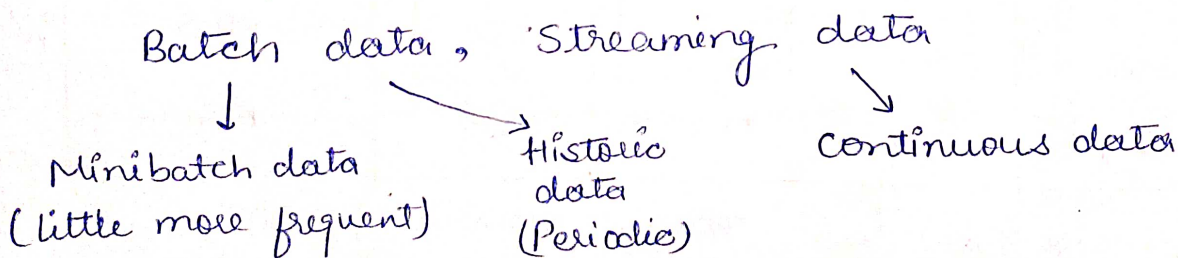 Batch data, Streaming data
Minibatch data
(little more frequent)
Historic
data
(Periodic)
continuous data